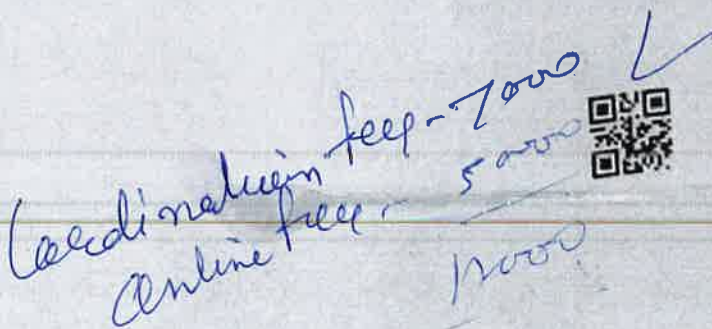 Coordination fees - 7000
Online fees - 5000
12000